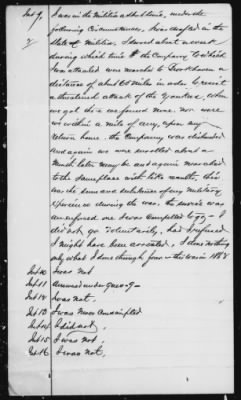 Int 9. I was in the Militia a short time, under the
following Circumstances, I was drafted in the
State Militia, I served about a week
during which time the Company to which
I was attached was marched to Brookhaven a
distance of about 20 miles in order to resist
a threatened attack of the Yankees, when
we got there we found none, nor were
we within miles of any, upon my
return home the Company was disbanded
and again we were enrolled about a
month later may be and again marched
to the same place with like results, this
was the sum and substance of my military
experience during the war, the service was
an enforced one I was Compelled to go - I
did not go voluntarily, had I refused
I might have been arrested, I done nothing
only what I done through fear - this was in 1863
Int 10 I was not
Int 11 Answered under Ques 9 -
Int 12 I was not.
Int 13 I was Never Conscripted
Int 14 I did not,
Int 15 I was not
Int 16 I was not,